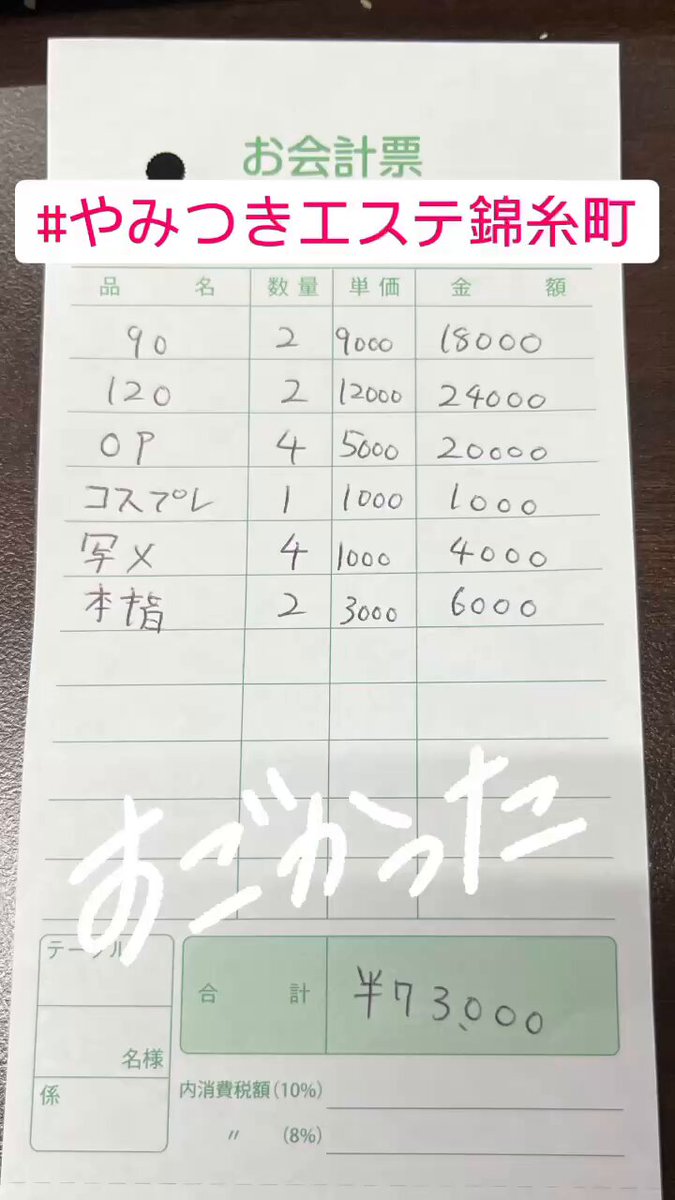 お会計票
#やみつきエステ錦糸町
品名 数量 単価 金額
90 2 9000 18000
120 2 12000 24000
OP 4 5000 20000
コスプレ 1 1000 1000
写メ 4 1000 4000
本指 2 3000 6000
すごかった
テーブル
合計 ¥73,000
名様
係
内消費税額(10%)
〃 (8%)